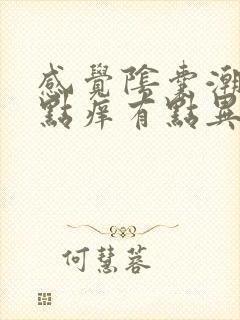 感覺陰囊潮
點痒有點異
何慧蓉